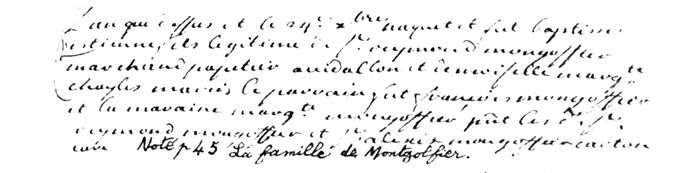 L'an que dessus et le 24e xbre naquet et fut baptisé
estienne fils legitime de sr reymond mongoffier
marchand papetier a vidallon et demoiselle margte
charles mariés le parrain fut françois mongoffier
et la maraine margte mongoffier pnt les srs
reymond mongoffier et sr alexis mongoffier
curé Note p 45 La famille de Montgolfier.